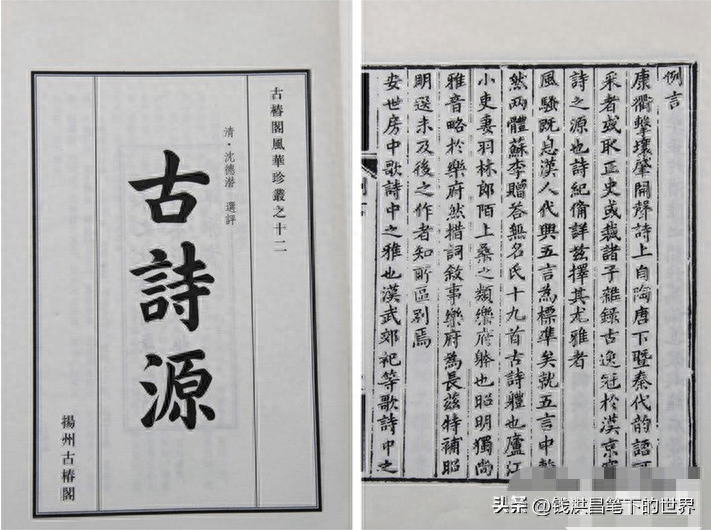 古椿閣風華珍叢之十二
清·沈德潜 選評
古詩源
揚州古椿閣
例言
康衢擊壤肇開聲詩上自陶唐下暨秦代韵語可
采者或取正史或裁諸子雜錄古逸冠於漢京窮
詩之源也詩紀備詳兹擇其尤雅者
風騷既息漢人代興五言為標準矣就五言中較
然兩體蘇李贈荅無名氏十九首古詩體也廬江
小吏妻羽林郎陌上桑之類樂府軆也昭明獨尚
雅音略於樂府然措詞敘事樂府為長兹特補昭
明選未及後之作者知所區别焉
安世房中歌詩中之雅也漢武郊祀等歌詩中之
头条 @钱洪昌笔下的世界